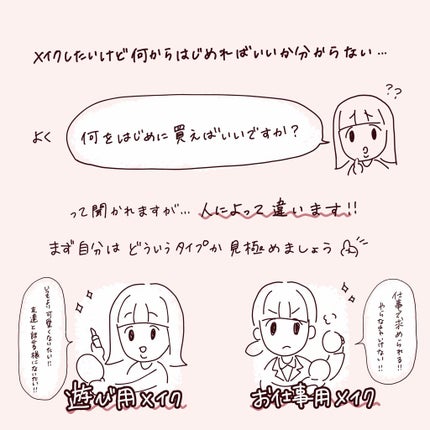 メイクしたいけど何からはじめればいいか分からない…
??
よく
何をはじめに買えばいいですか?
って聞かれますが… 人によって違います!!
まず自分は どういうタイプか 見極めましょう
いつもより可愛くなりたい!!
友達と話せる様になりたい!!
遊び用メイク
仕事で求められる!!
やらなきゃいけない!!
お仕事用メイク